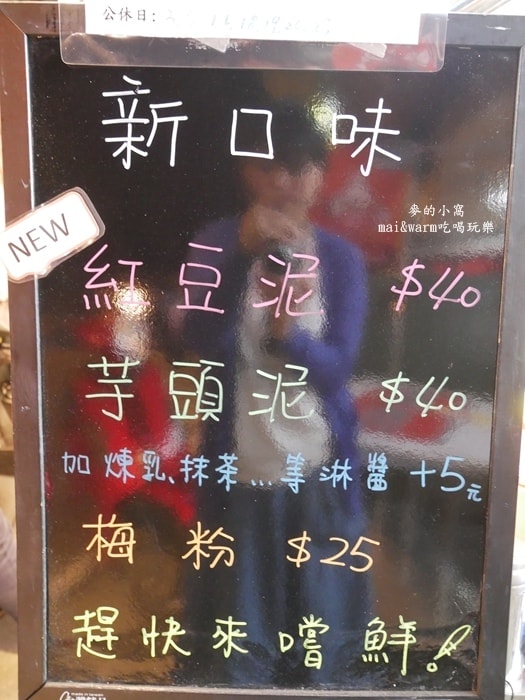 公休日:
新口味
麥的小窩
mai&warm吃喝玩樂
NEW
紅豆泥 $40
芋頭泥 $40
加煉乳、抹茶...等淋醬 +5元
梅粉 $25
趕快來嚐鮮!